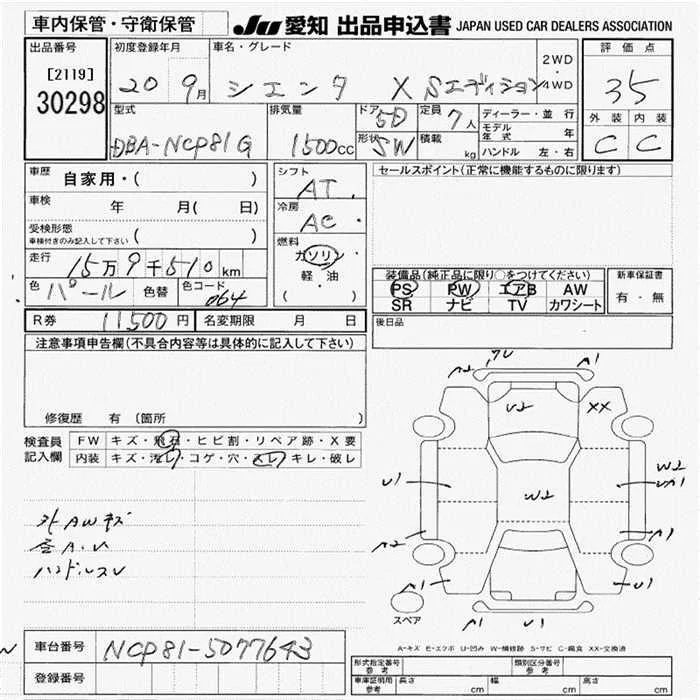 車内保管・守衛保管
JU 愛知 出品申込書 JAPAN USED CAR DEALERS ASSOCIATION
出品番号
[2119]
30298
初度登録年月
20 9月
車名・グレード
シエンタ X Sエディション
2WD
4WD
評価点
35
外装 内装
C C
型式
DBA-NCP81G
排気量
1500cc
ドア
5D
形状
SW
定員
7人
積載
kg
ディーラー・並行
モデル年式 年
ハンドル 左・右
車歴
自家用・( )
車検
年 月( 日)
受検形態
車検付きのみ記入して下さい ( )
走行
15万9千510km
色 パール 色替 色コード 064
R券 11500円 名変期限 月 日
シフト
AT
冷房
AC
燃料
ガソリン・
軽・油
( )
セールスポイント(正常に機能するものに限ります)
装備品(純正品に限り○をつけてください)
PS PW エアB AW
SR ナビ TV カワシート
新車保証書
有・無
後日品
注意事項申告欄(不具合内容等は具体的に記入して下さい)
修復歴 有 〔箇所 〕
検査員
記入欄
FW キズ・飛石・ヒビ割・リペア跡・X要
内装 キズ・汚レ・コゲ・穴・スレ・キレ・破レ
外AWキズ
ハンドルスレ
A2
A1
U2
XX
U1
W2
W2
A2
A1
A1
U1
A1
U1
スペア
A-キズ E-エクボ U-凹み W-補修跡 S-サビ C-腐食 XX-交換済
車台番号 NCP81-5077643
登録番号
形式指定番号
参考
類別区分番号
参考
車庫証明用
参考
長さ cm 幅 cm 高さ cm